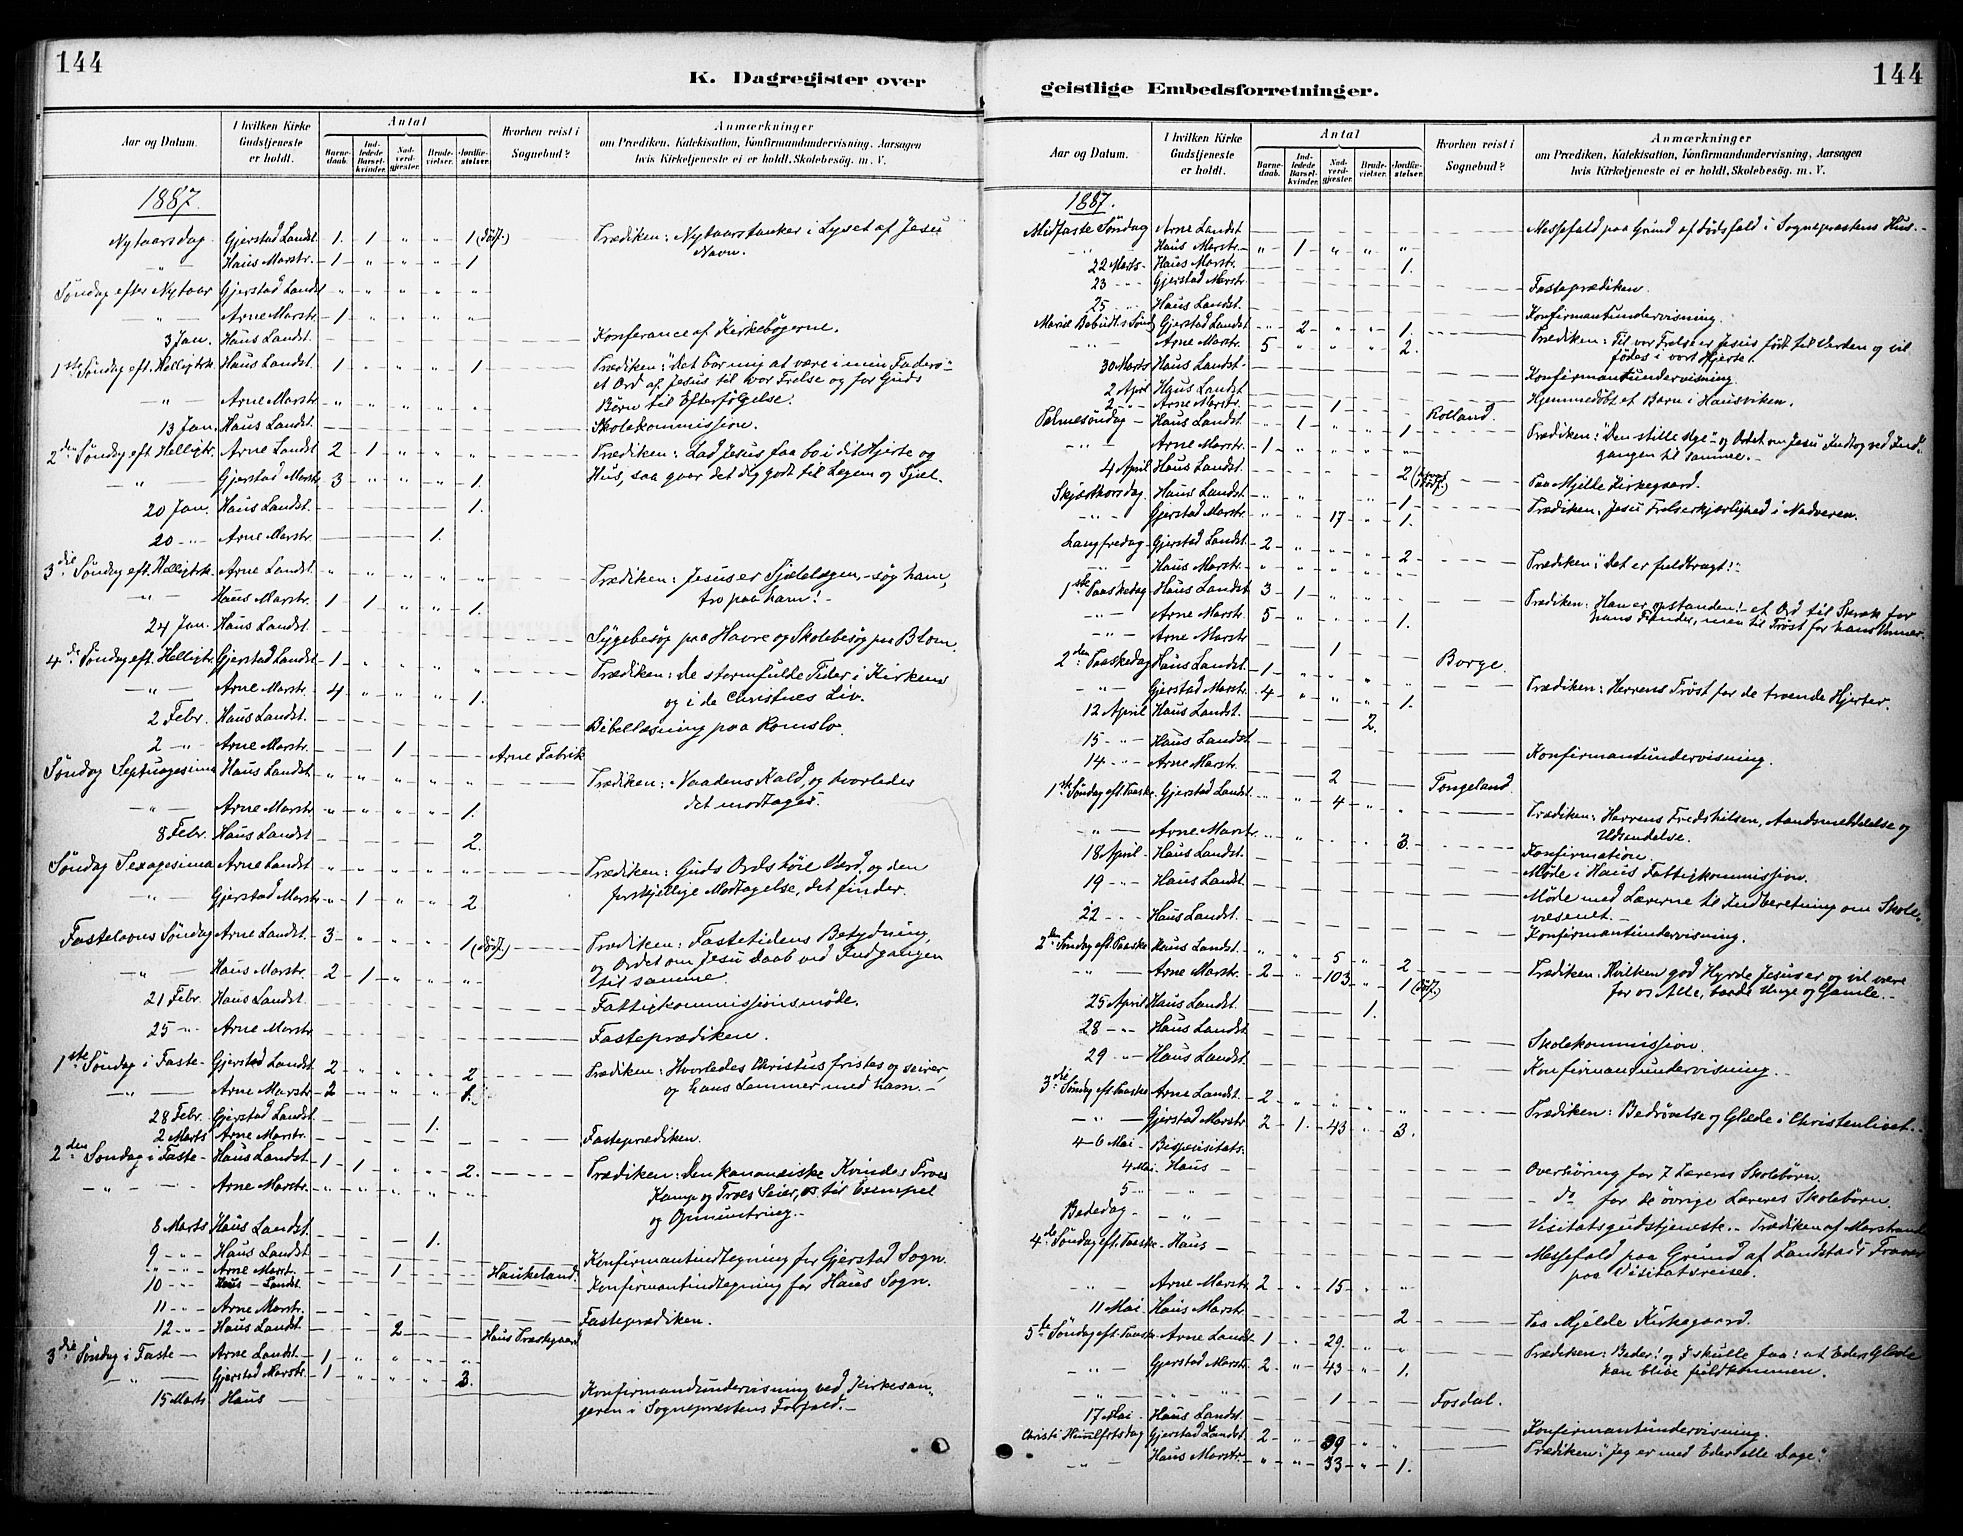 144
K. Dagregister over
Aar og Datum.
I hvilken Kirke Gudstjeneste er holdt.
Antal
Barne-daab.
Ind-ledede Barsel-kvinder.
Nad-verd-gjester.
Brude-vielser.
Jordfæ-stelser.
Hvorhen reist i Sognebud?
Anmærkninger
om Prædiken, Katekisation, Konfirmandundervisning. Aarsagen
hvis Kirketjeneste ei er holdt, Skolebesøg. m. V.
1887.
Nytaarsdag. Gjerstad Landst. 1. 1 " " 1 (dødf.) Prædiken: Nytaarstanker i Lyset af Jesu
Navn.
" Haus Marstr. 1 " " " 1
Søndag efter Nytaar Gjerstad Landst " " " " "
" Arne Marstr. 1 " " " "
3 Jan. Haus Landst. Konferance af Kirkebøgerne.
1ste Søndag eft. Helligtrk. Haus Landst. 1 " " " 1 Prædiken: "Det bør mig at være i min Faders"
et Ord af Jesus til vor Frelse og for Guds
" Arne Marstr. " " " " " Børn til Efterfølgelse.
13 Jan. Haus Landst. Skolekommission.
2den Søndag eft. Helligtr. Arne Landst 2 1 " " " Prædiken: Lad Jesus faa bo i dit Hjerte og
" Gjerstad Marstr. 3 " " " 1. Hus, saa gaar det dig godt til Legem og Sjæl.
20 Jan. Haus Landst. 1.
20 " Arne Marstr. 1.
3die Søndag eft. Helligtrk. Arne Landst. " " " " " Prædiken: Jesus er Sjælelægen, - søg ham,
tro paa ham!
" Haus Marstr. 1 1 " " 1.
24 Jan. Haus Landst. Sygebesøg paa Havre og Skolebesøg paa Blom.
4de Søndag eft. Helligtr. Gjerstad Landst. 1 " " " " Prædiken: De stormfulde Tider i Kirkens
" Arne Marstr. 4 " " " 1. og i de Christnes Liv.
2 Febr. Haus Landst. Bibellæsning paa Romslo.
2 " Arne Marstr. 1 Arne Fabrik
Søndag Septuagesima Haus Landst. " " " " " Prædiken: Naadens Kald, og hvorledes
det modtages.
" Arne Marstr. " " " " 1.
8 Febr. Haus Landst. 2.
Søndag Sexagesima Arne Landst. " " " " " Prædiken: Guds Ords høie Værd, og den
" Gjerstad Marstr. " 1 " " 2 forskjellige Modtagelse, det finder.
Fastelavns Søndag Arne Landst. 3 " " " 1 (dødf.) Prædiken: Fastetidens Betydning,
" Haus Marstr. 2 1 " " " og Ordet om Jesu Daab ved Indgangen
til samme.
21 Febr. Haus Landst. Fattigkommissionsmøde.
25 " Arne Marstr Fasteprædiken.
1ste Søndag i Faste Gjerstad Landst. 2 " " " 2 Prædiken: Hvorledes Christus fristes og seirer,
" Arne Marstr. 2 " " " 1. og hans Lemmer med ham.
28 Febr. Gjerstad Landst. 1.
2 Marts Arne Marstr. Fasteprædiken.
2den Søndag i Faste Haus Landst. 1 1 " " 2. Prædiken: Den kananæiske Kvindes Troes
" Arne Marstr. " " " " " Kamp og Troes Seier, os til Exempel
og Opmuntring.
8 Marts Haus Landst. 1.
9 " Haus Landst. Konfirmantindtegning for Gjerstad Sogn.
" Arne Marst. 1 Haukeland.
10 " Haus Landst. Konfirmantindtegning for Haus Sogn.
11 " Arne Marstr. Fasteprædiken.
12 " Haus Landst. 2 Haus Præstegaard
3die Søndag i Faste Arne Landst. 1 " " " "
" Gjerstad Marstr. 1 " " " 3.
15 Marts Haus Konfirmandundervisning ved Kirkesan-
geren i Sognepræstens Forfald.
144
geistlige Embedsforretninger.
Aar og Datum.
I hvilken Kirke Gudstjeneste er holdt.
Antal
Barne-daab.
Ind-ledede Barsel-kvinder.
Nad-verd-gjester.
Brude-vielser.
Jordfæ-stelser.
Hvorhen reist i Sognebud?
Anmærkninger
om Prædiken, Katekisation, Konfirmandundervisning, Aarsagen
hvis Kirketjeneste ei er holdt, Skolebesøg. m. V.
1887.
Midfaste Søndag Arne Landst Messefald paa Grund af Dødsfald i Sognepræstens Hus.
" Haus Marstr. " 1 " " "
22 Marts Haus Marstr. 1.
23 " Gjerstad Marstr Fasteprædiken.
25 " Haus Landst. Konfirmantundervisning.
Mariæ Bebud.s Sønd. Gjerstad Landst " 2 " " 1. Prædiken: Til vor Frelse er Jesus født til Verden og vil
" Arne Marstr. 5 " " " 2. fødes i vort Hjerte.
30 Marts Haus Landst. Konfirmantundervisning.
2 April Haus Landst Hjemmedøbt et Barn i Hausviken.
2 " Arne Marstr. 1 Rolland.
Palmesøndag Haus Landst. " 1 " " 1. Prædiken: "Den stille Uge" og Ordet om Jesu Indtog ved Ind-
" Arne Marstr. 1 " " " " gangen til samme.
4 April Haus Landst. 2 Paa Mjelde Kirkegaard.
Skjærthorsdag. Haus Landst. " " " " 1 Prædiken: Jesu Frelserkjærlighed i Nadveren.
" Gjerstad Marstr. " " 17 " 1.
Langfredag Gjerstad Landst. 2 " " " 2 Prædiken: "Det er fuldbragt!"
" Haus Marstr. " " " " "
1ste Paaskedag Haus Landst 3 1 " " " Prædiken: Han er opstanden! et Ord til Skræk for
" Arne Marstr. 5 " " " 1. hans Fiender, men til Trøst for hans Venner.
" Arne Marstr 1 Borge.
2den Paaskedag Haus Landst. 1 " " " " Prædiken: Herrens Trøst for de troende Hjerter.
" Gjerstad Marstr. 4 " " " 1.
12 April Haus Landst. 2.
15 " Haus Landst Konfirmantundervisning.
14 " Arne Marstr. 2 Tongeland.
1ste Søndag eft. Paaske. Gjerstad Landst. " " 4 " " Prædiken: Herrens Fredshilsen, Aandsmeddelelse og
Udsendelse.
" Arne Marstr. " " " " 3.
18 April Haus Landst. Konfirmation.
Møde i Haus Fattigkommission.
19 " Haus Landst. Møde med Lærerne til Indberetning om Skole-
væsenet.
22 " Haus Landst. Konfirmantundervisning.
2den Søndag eft. Paaske Haus Landst. " " 5 " 2 Prædiken: Hvilken god Hyrde Jesus er og vil være
" Arne Marstr. 2 " 103 " 1 (dødf.) for os Alle, baade Unge og Gamle.
25 April Haus Landst. 1.
28 " Haus Landst. Skolekommission.
29 " Haus Landst. Konfirmantundervisning.
3die Søndag eft. Paaske Arne Landst. 2 " " " " Prædiken: Bedrøvelse og Glæde i Christenlivet.
" Gjerstad Marstr. 2 1. 43 " 3.
4-6 Mai Bispevisitats.
4 Mai Haus Overhøring for 7 Læreres Skolebørn.
5 " " do for de øvrige Læreres Skolebørn.
Bededag " Visitatsgudstjeneste. Prædiken af Marstrand
4de Søndag eft. Paaske Haus Messefald paa Grund af Landstads Fravær
paa Visitatsreise.
" Arne Marstr. 2 " 15 " "
11 Mai Haus Marstr 2 Paa Mjelde Kirkegaard.
5te Søndag eft. Paaske Arne Landst. 1 " 29. " " Prædiken: Beder! og I skulle faa! at Eders Glæde
" Gjerstad Marstr. 2 " 43 " 1. kan blive fuldkommen.
" " " 1 Fosdal.
17 Mai Haus Landst. Konfirmantundervisning.
Christi Himmelfartsdag Gjerstad Landst. 2 " 39 " " Prædiken: "Jeg er med Eder alle Dage".
" Haus Marstr. " " 33 " 1.